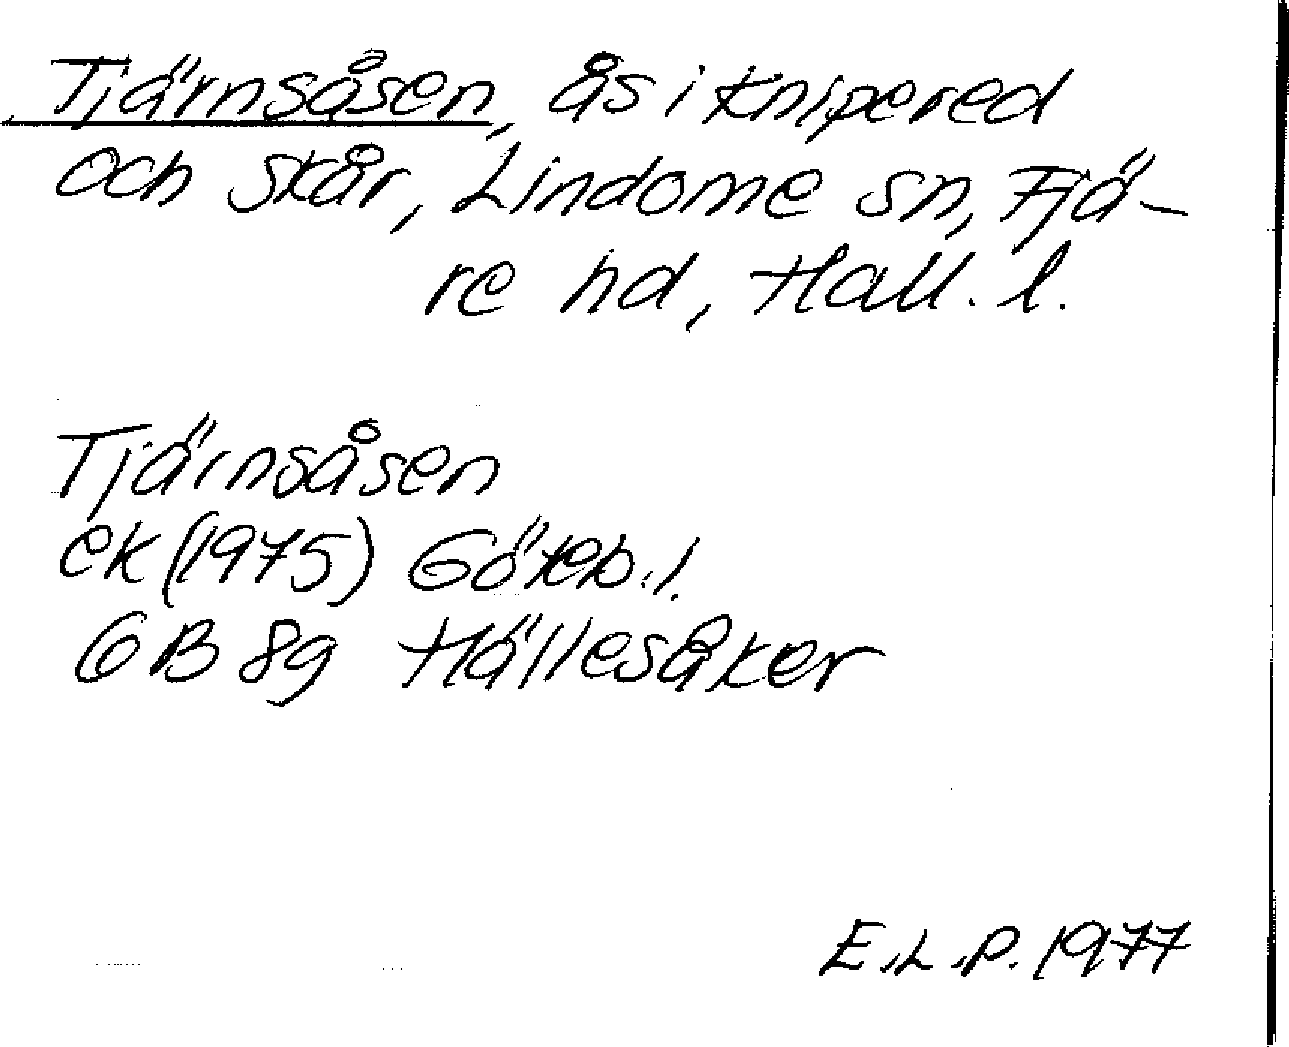 Tjärnsåsen, ås i Knipered
och Skår, Lindome sn, Fjä-
re hd, Hall. l.
Tjärnsåsen
ek (1975) Göteb. l.
6B 8g Hällesåker
E.L.P. 1977